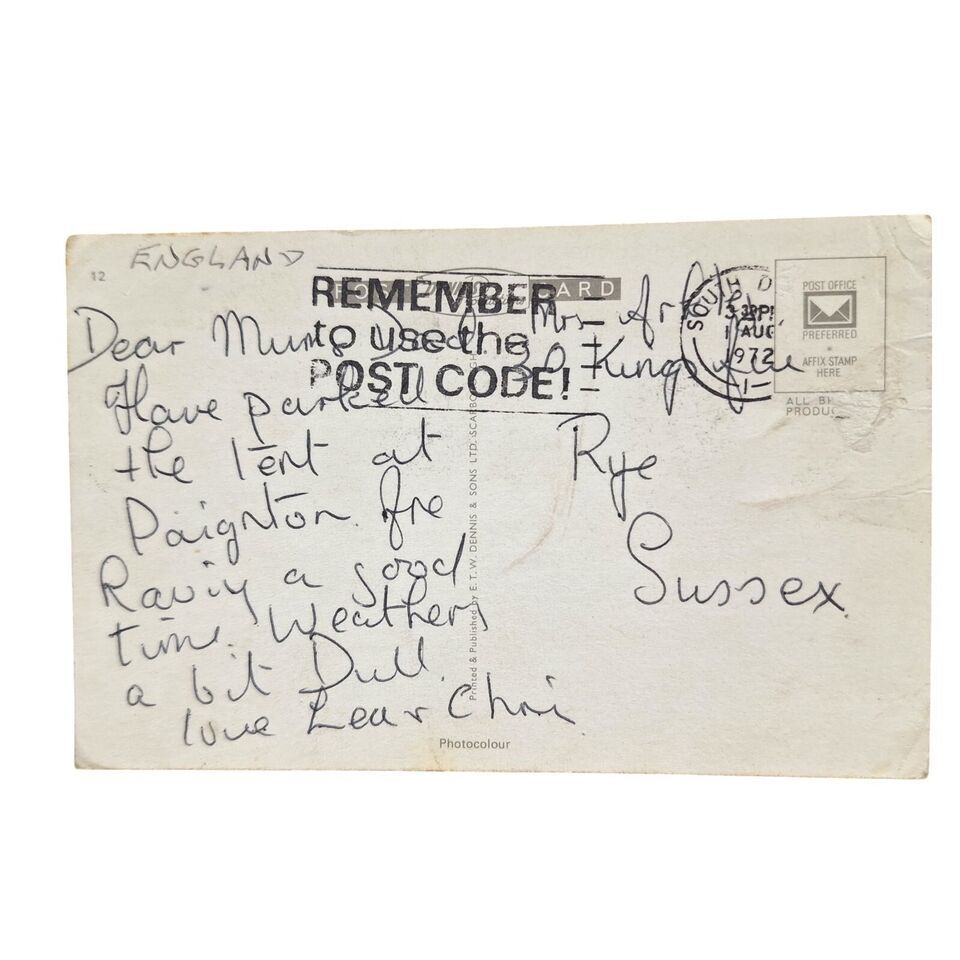 12
ENGLAND
POST CARD
REMEMBER
to use the
POST CODE!
SOUTH D
PM
1 AUG
1972
POST OFFICE
PREFERRED
AFFIX STAMP
HERE
ALL B
PRODUC
Dear Mum & Dad
Have parked
the tent at
Paignton. Are
Having a good
time. Weathers
a bit Dull.
love
Mrs
Kings Ave
Rye
Sussex
Printed & Published by E.T.W. DENNIS & SONS LTD. SCARBO
Photocolour